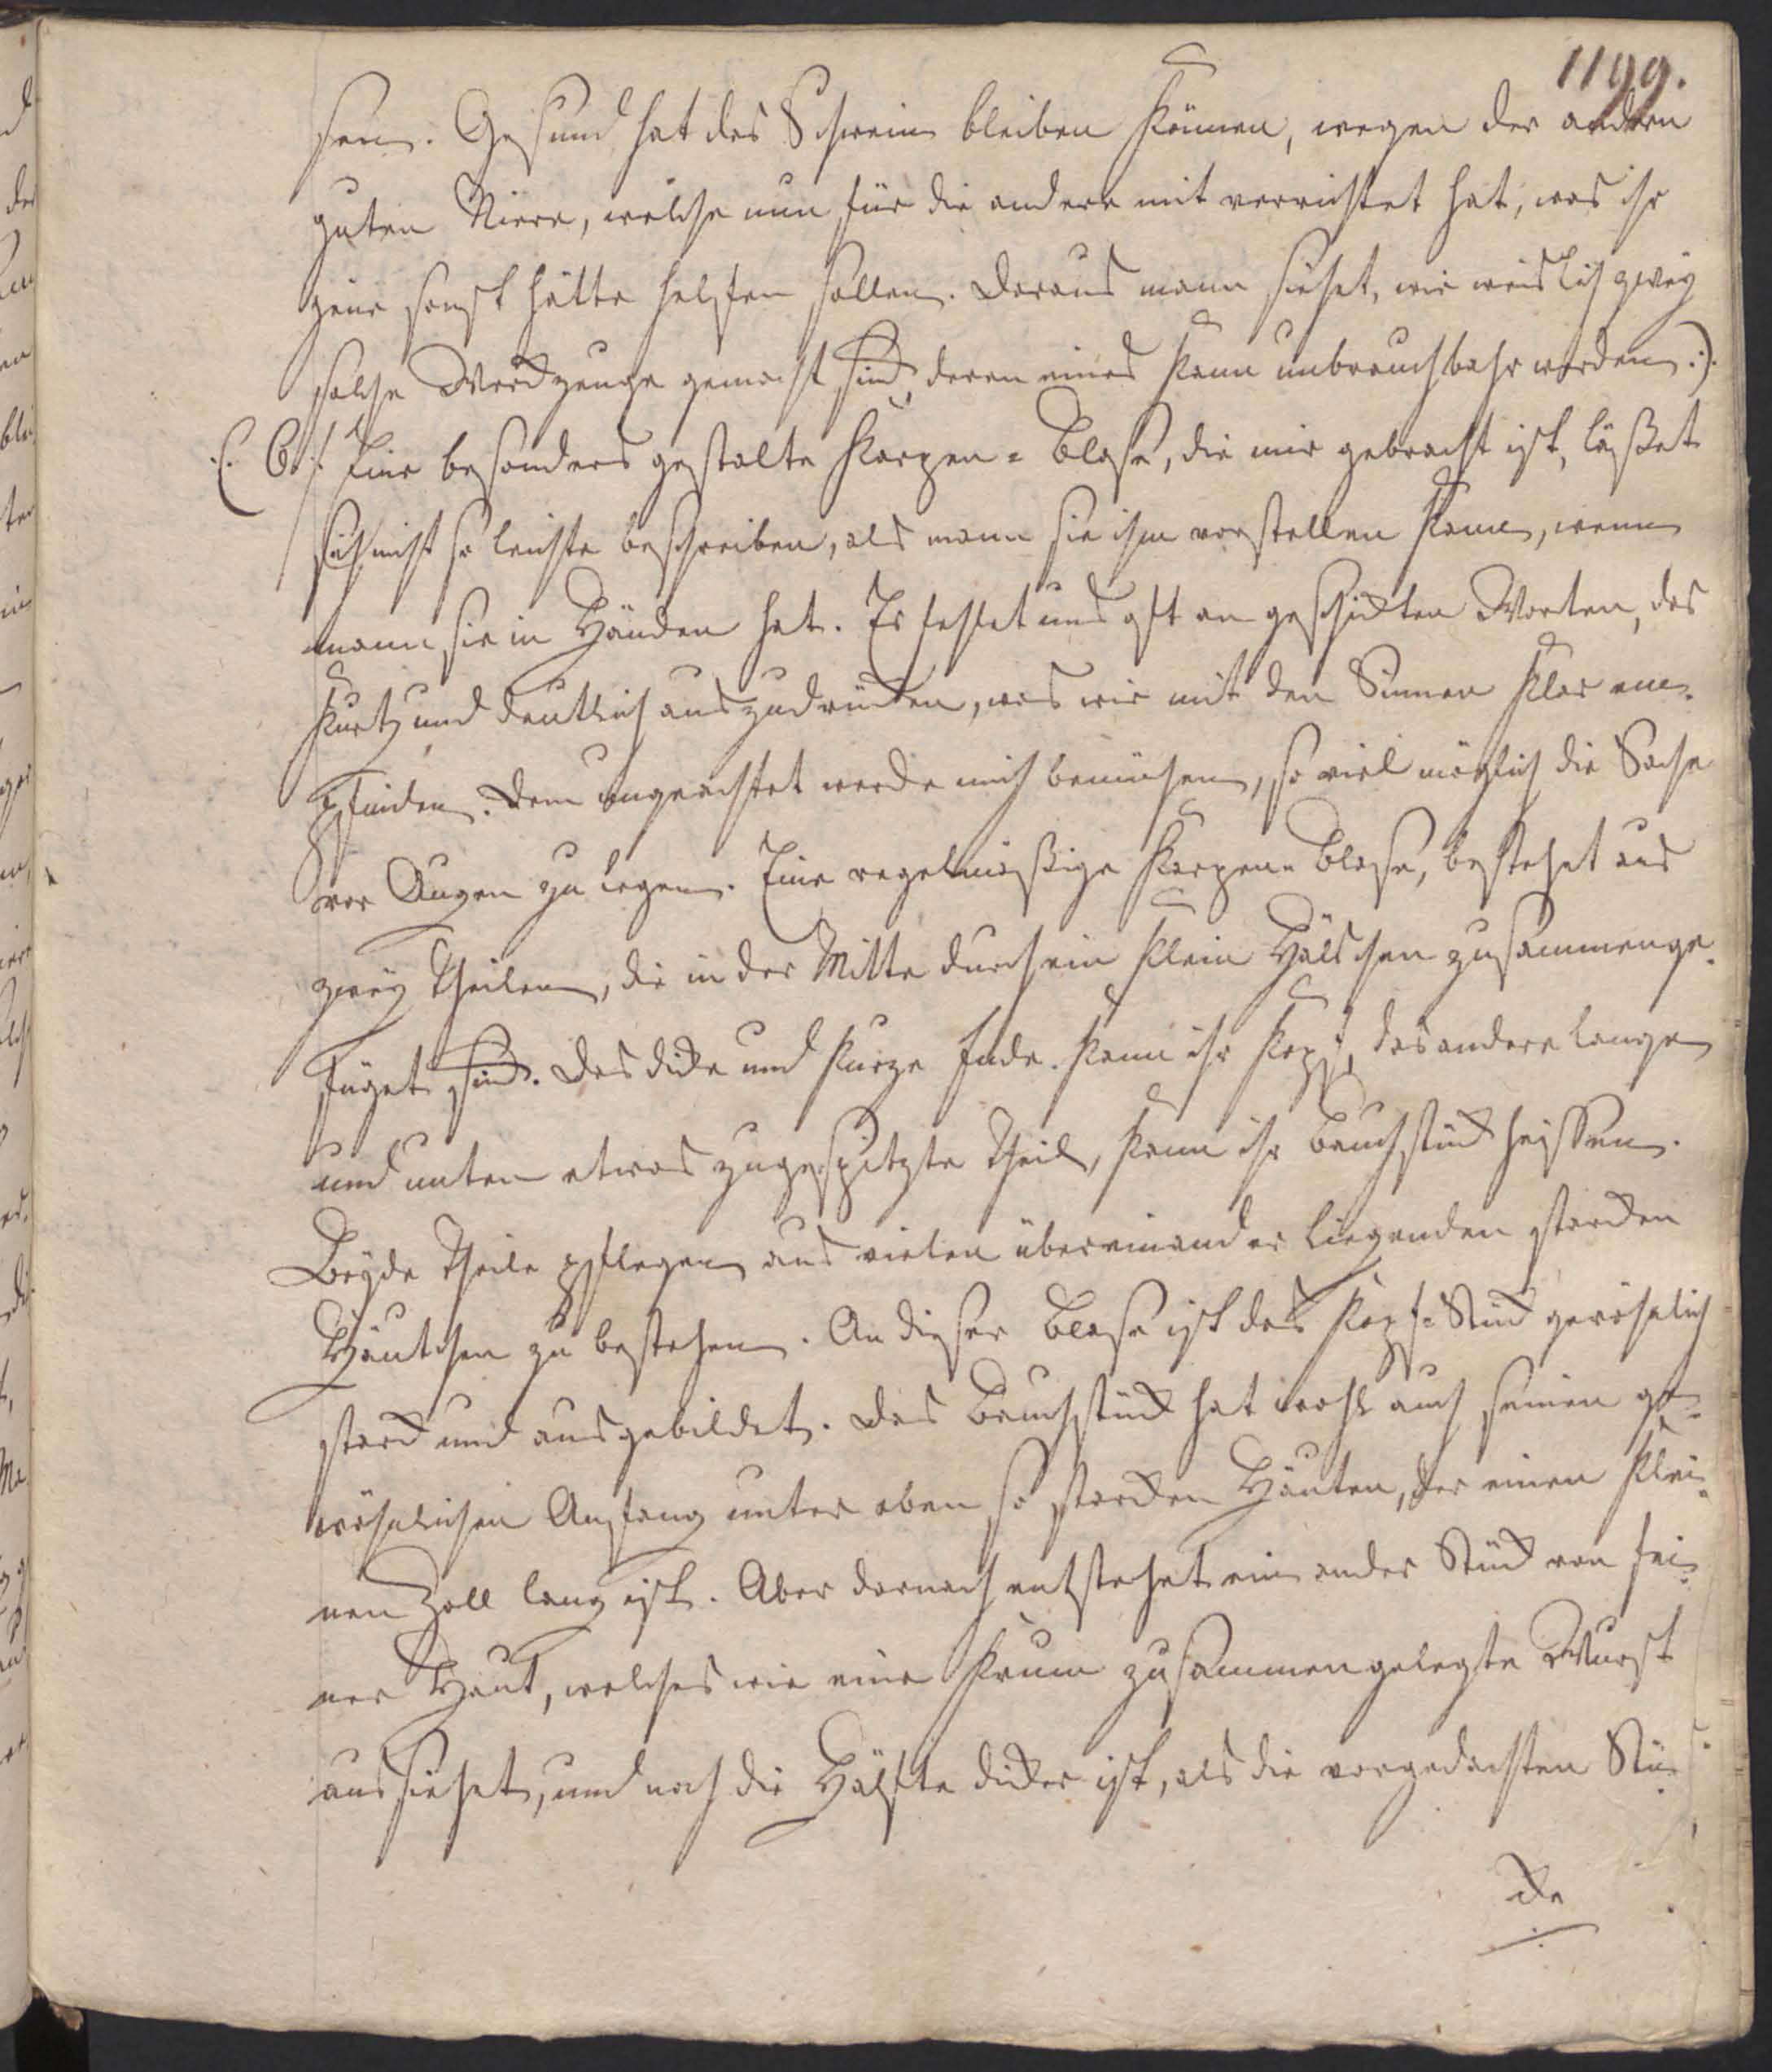 1199.
sen. Gesund hat das Schwein bleiben können, wegen der andern
guten Niere, welche nun für die andere mit verrichtet hat, was ihr
jene sonst hätte helfen sollen. Daraus mann siehet, wie weislich zwey
solche Werckzeuge gemacht sind, deren eines kann unbrauchbahr werden.).
.(. 6.) Eine besonders gestalte Karpen-Blase, die mir gebracht ist, läßet
sich nicht so leichte beschreiben, als mann sie ihm vorstellen kann, wenn
mann sie in Händen hat. Es fehlet uns oft an geschickten Worten, das
kurtz und deutlich auszudrücken, was wir mit den Sinnen klar em-
pfinden. Dem ungeachtet werde mich bemühen, so viel möglich die Sache
vor Augen zu legen. Eine regelmäßige Karpen-Blase, bestehet aus
zwey Theilen, die in der Mitte durch ein klein Hälschen zusammenge-
füget sind. Das dicke und kurze Ende kann ihr Kopf, das andere lange
und unten etwas zugespitzte Theil, kann ihr Bauchstück heissen.
Beyde Theile pflegen aus vielen übereinander liegenden starcken
Häutchen zu bestehen. An dieser Blase ist das Kopf-Stück gewöhnlich
starck und ausgebildet. Das Bauchstück hat wohl auch seinen ge-
wöhnlichen Anfang unter eben so starcken Häuten, der einen klei-
nen Zoll lang ist. Aber darnach entstehet ein ander Stück von fei-
ner Haut, welches wie eine krum zusammengelegte Wurst
aussiehet, und noch die Hälfte dicker ist, als die vorgedachten Stü-
cke